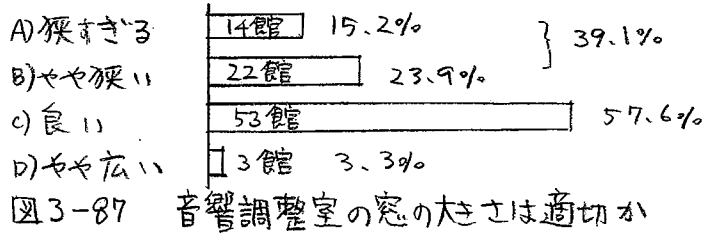 A)狭すぎる 14館 15.2% 39.1%
B)やや狭い 22館 23.9%
C)良い 53館 57.6%
D)やや広い 3館 3.3%
図3-87 音響調整室の窓の大きさは適切か